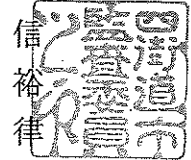 四街道市
監査委員
之印
信裕律